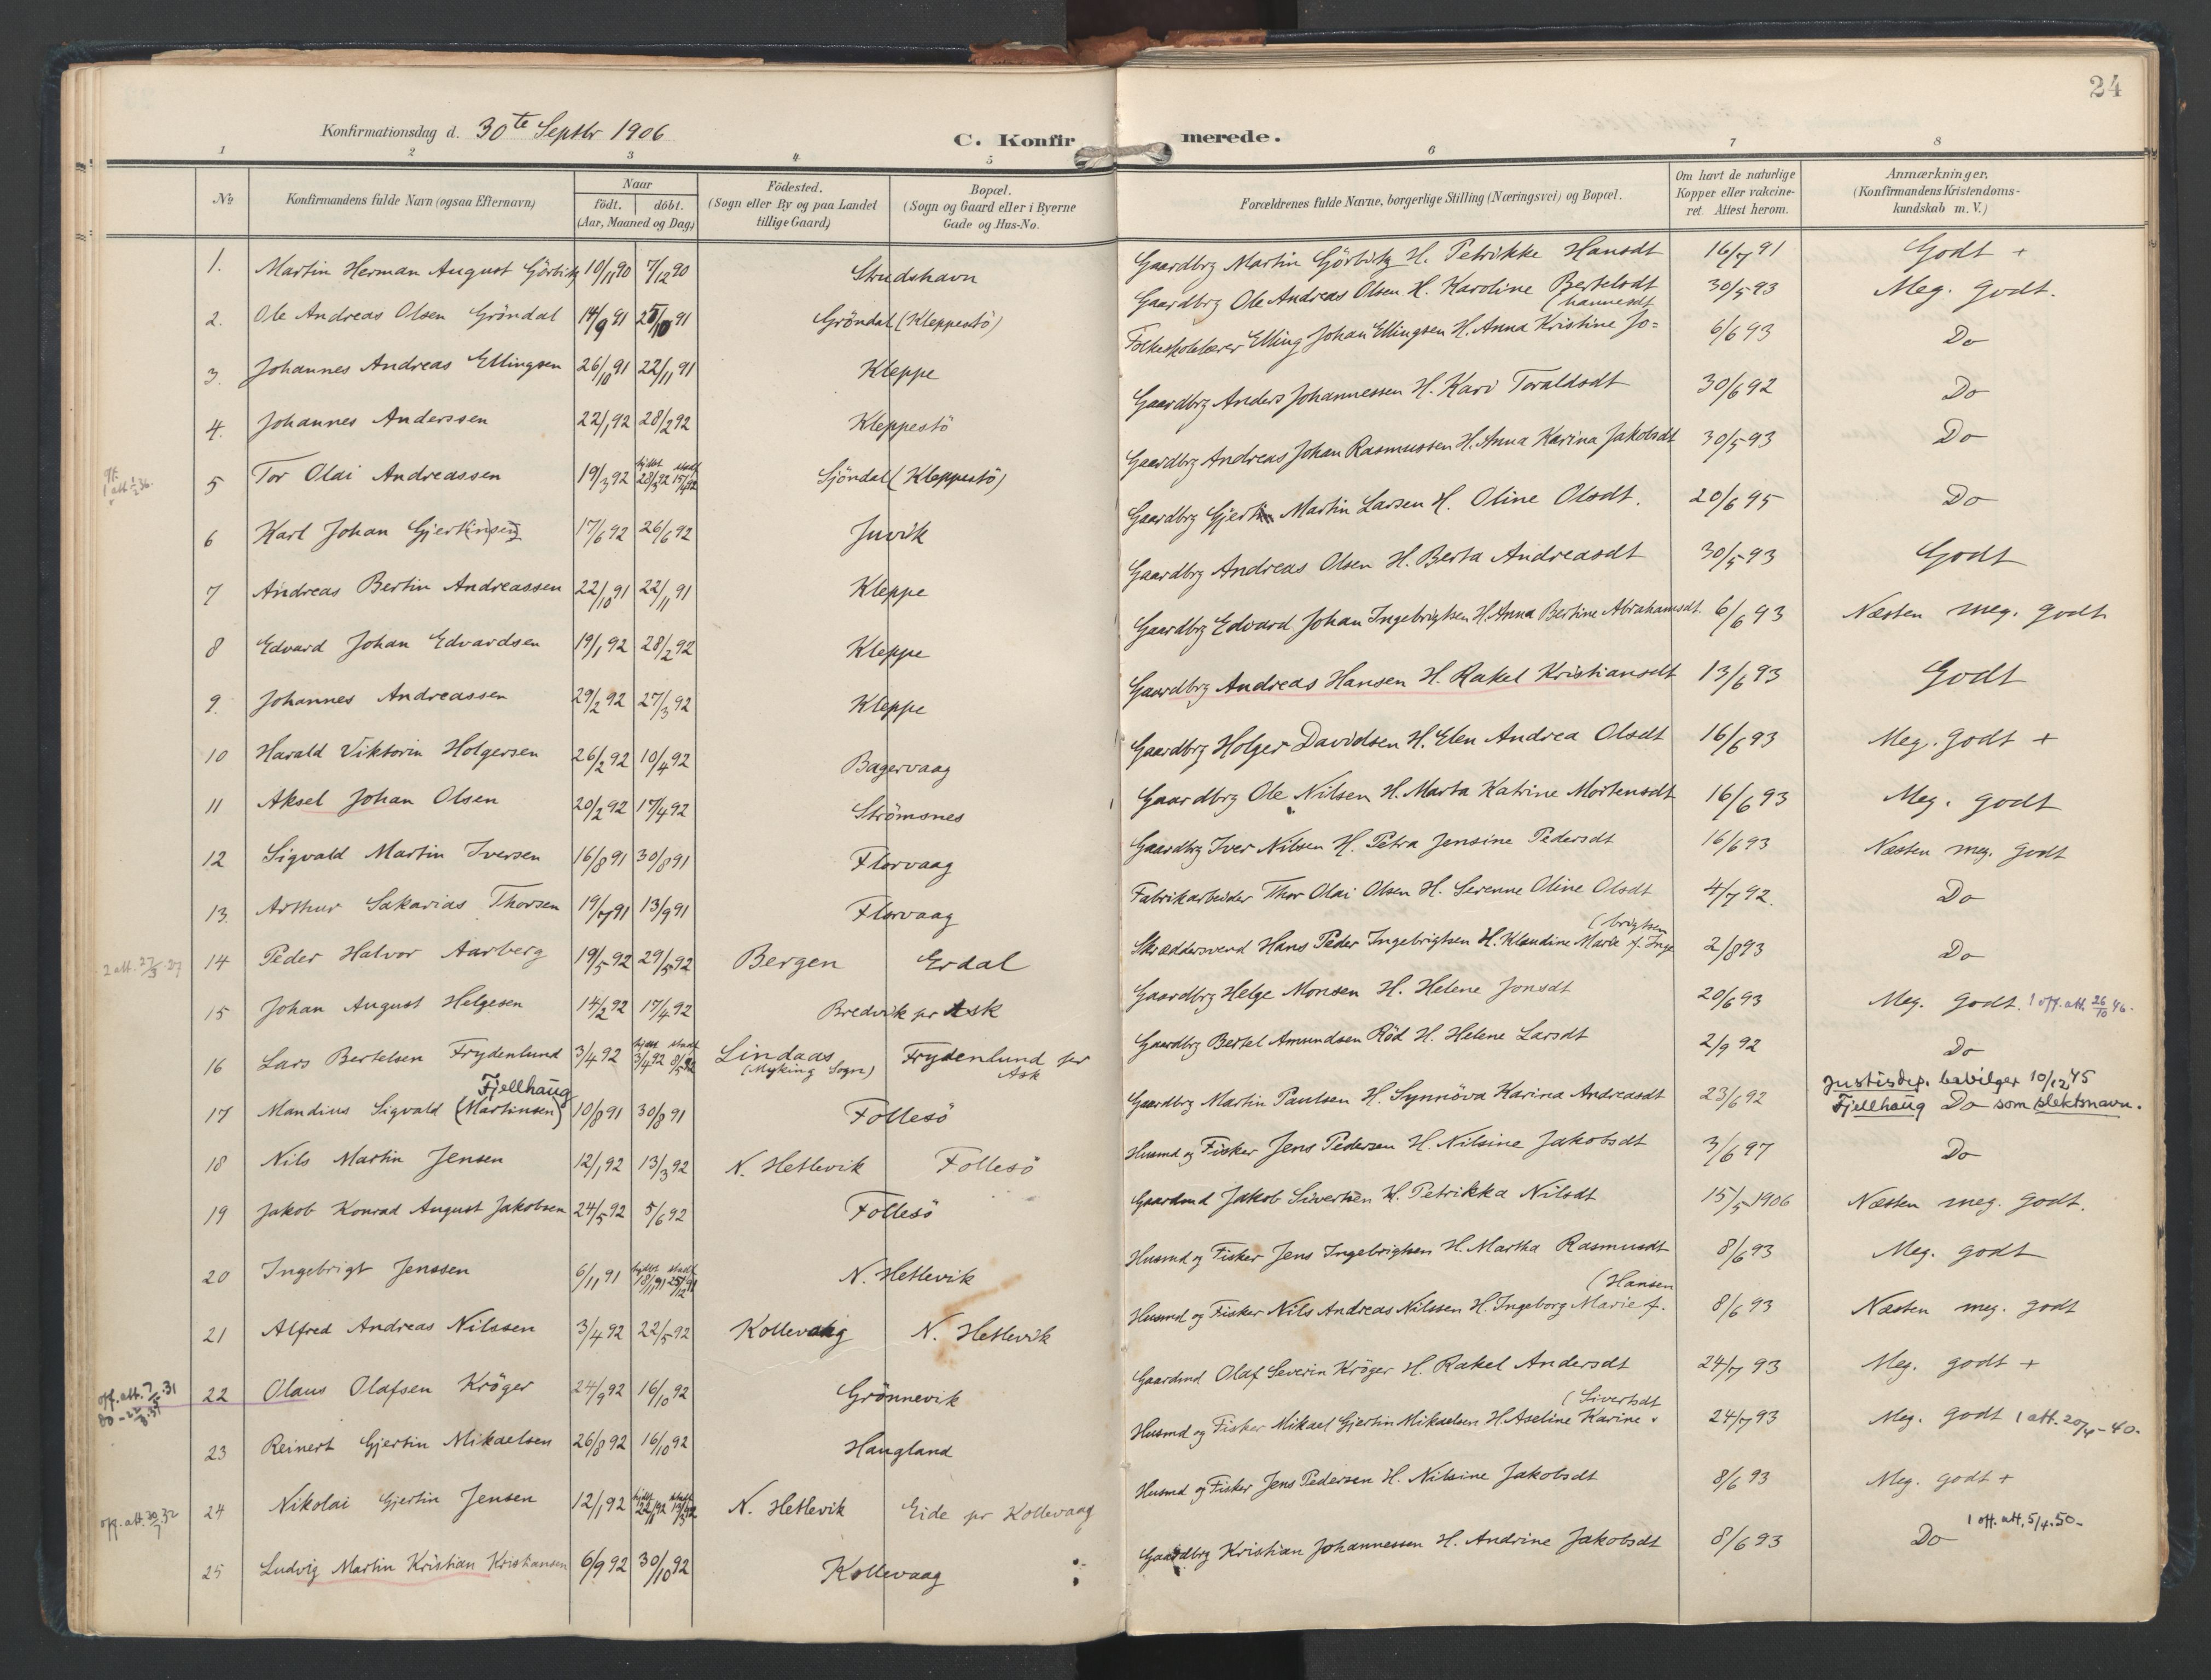 24
Konfirmationsdag d. 30te Septbr 1906
C. Konfirmerede.
1 2 3 4 5 6 7 8
No
Konfirmandens fulde Navn (ogsaa Efternavn)
Naar
födt. döbt.
(Aar, Maaned og Dag)
Födested.
(Sogn eller By og paa Landet
tillige Gaard)
Bopæl.
(Sogn og Gaard eller i Byerne
Gade og Hus-No.
Forældrenes fulde Navne, borgerlige Stilling (Næringsvei) og Bopæl.
Om havt de naturlige
Kopper eller vakcine-
ret. Attest herom.
Anmærkninger.
(Konfirmandens Kristendoms-
kundskab m.V.)
1. Martin Herman August Görbitz 10/11 90 7/12 90 Strudshavn Gaardbrg Martin Görbitz H. Petrikke Hansdt 16/7 91 Godt +
2. Ole Andreas Olsen Gröndal 14/9 91 25/10 91 Gröndal (Kleppestö) Gaardbrg Ole Andreas Olsen H. Karoline Bertelsdt 30/5 93 Meg. Godt.
(hannesdt
3. Johannes Andreas Ellingsen 26/10 91 22/11 91 Kleppe Folkeskolelærer Elling Johan Ellingsen H. Anna Kristine Jo= 6/6 93 Do
4. Johannes Anderssen 22/1 92 28/2 92 Kleppestö Gaardbrg Anders Johannessen H. Kari Toraldsdt 30/6 92 Do
5 Tor Olai Andreassen 19/3 92 hjdbt 28/3 92 stadf 15/4 92 Sjöndal (Kleppestö) Gaardbrg Andreas Johan Rasmussen H. Anna Karina Jakobsdt 30/5 93 Do
6 Karl Johan Gjertinsen 17/6 92 26/6 92 Juvik Gaardbrg Gjert Martin Larsen H. Oline Olsdt. 20/6 95 Do
7 Andreas Bertin Andreassen 22/10 91 22/11 91 Kleppe Gaardbrg Andreas Olsen H. Berta Andreasdt 30/5 93 Godt
8 Edvard Johan Edvardsen 19/1 92 28/2 92 Kleppe Gaardbrg Edvard Johan Ingebrigtsen H. Anna Bertine Abrahamsdt. 6/6 93 Næsten meg. godt
9. Johannes Andreassen 29/2 92 27/3 92 Kleppe Gaardbrg Andreas Hansen H. Rakel Kristiansdt 13/6 93 Godt
10 Harald Viktorin Holgersen 26/2 92 10/4 92 Bagervaag Gaardbrg Holger Davidsen H. Elen Andrea Olsdt 16/6 93 Meg. godt +
11 Aksel Johan Olsen 20/2 92 17/4 92 Strömsnes Gaardbrg Ole Nilsen H. Marta Katrine Mortensdt 16/6 93 Meg. godt
12 Sigvald Martin Iversen 16/8 91 30/8 91 Florvaag Gaardbrg Iver Nilsen H. Petra Jensine Pedersdt 16/6 93 Næsten meg. godt
13. Arthur Sakarias Thorsen 19/7 91 13/9 91 Florvaag Fabrikarbeider Thor Olai Olsen H. Serenne Oline Olsdt 4/7 92. Do
(brigtsen
2 att. 27/3 27 14 Peder Halvor Aarberg 19/5 92 29/5 92 Bergen Erdal Skræddersvend Hans Peder Ingebrigtsen H. Klaudine Marie f. Inge 2/8 93 Do
15 Johan August Helgesen 14/2 92 17/4 92 Bredvik pr Ask Gaardbrg Helge Monsen H. Helene Jonsdt 20/6 93 Meg. Godt. 1 off. att. 26/10 46.
16 Lars Bertelsen Frydenlund 3/4 92 hjdbt 3/4 92 stadf 8/5 92 Lindaas Frydenlund pr Gaardbrg Bertel Amundsen Röd H. Helene Larsdt 2/9 92 Do
(Myking Sogn) Ask
Fjellhaug Justisdep. bevilger 10/12 45
17 Mandius Sigvald (Martinsen) 10/8 91 30/8 91 Follesö Gaardbrg Martin Paulsen H. Synnöva Karina Andreasdt 23/6 92 Fjellhaug Do som slektsnavn.
18 Nils Martin Jensen 12/1 92 13/3 92 N. Hetlevik Follesö Husmd og Fisker Jens Pedersen H. Nilsine Jakobsdt 3/6 97 Do
19 Jakob Konrad August Jakobsen 24/5 92 5/6 92 Follesö Gaardmd Jakob Sivertsen H. Petrikka Nilsdt 15/5 1906 Næsten meg. godt.
20 Ingebrigt Jenssen 6/11 91 hjdbt 18/11 91 stadf 25/12 91 N. Hetlevik Husmd og Fisker Jens Ingebrigtsen H. Martha Rasmusdt 8/6 93 Meg. godt
(Hansen
21 Alfred Andreas Nilssen 3/4 92 22/5 92 Kollevaag N. Hetlevik Husmd og Fisker Nils Andreas Nilssen H. Ingeborg Marie f. 8/6 93 Næsten meg. godt
22 Olaus Olafsen Kröger 24/9 92 16/10 92 Grönnevik Gaardmd Olaf Severin Kröger H. Rakel Andersdt 24/7 93 Meg. godt +
(Sivertsdt
23 Reinert Gjertin Mikaelsen 26/8 92 16/10 92 Haugland Husmd og Fisker Mikael Gjertin Mikaelsen H. Aseline Karine 24/7 93 Meg. godt 1 att. 20/4-40.
24 Nikolai Gjertin Jensen 12/1 92 N. Hetlevik Eide pr Kollevaag Husmd og Fisker Jens Pedersen H. Nilsine Jakobsdt 8/6 93 Meg. godt +
25 Ludvig Martin Kristian Kristiansen 6/9 92 30/10 92 Kollevaag Gaardbrg Kristian Johannessen H. Andrine Jakobsdt 8/6 93 Do 1 off. att. 5/4.50-